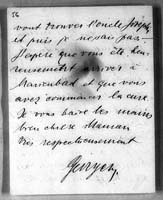 56
vont trouver l'oncle Serge
et puis je ne sais pas
J'espère que vous ête heu-
reusement arrivés à
Marienbad et que vous
avez commencer la cure.
Je vous baise les mains
bien chère Maman
Très respectueusement
Georges